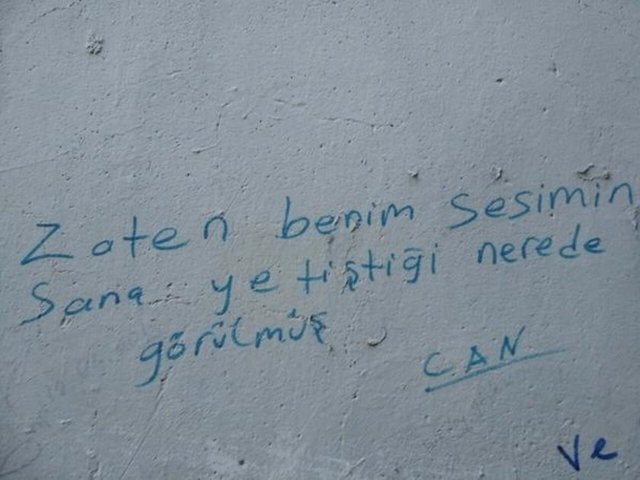 Zaten benim sesimin
Sana yetiştiği nerede
görülmüş
CAN
ve